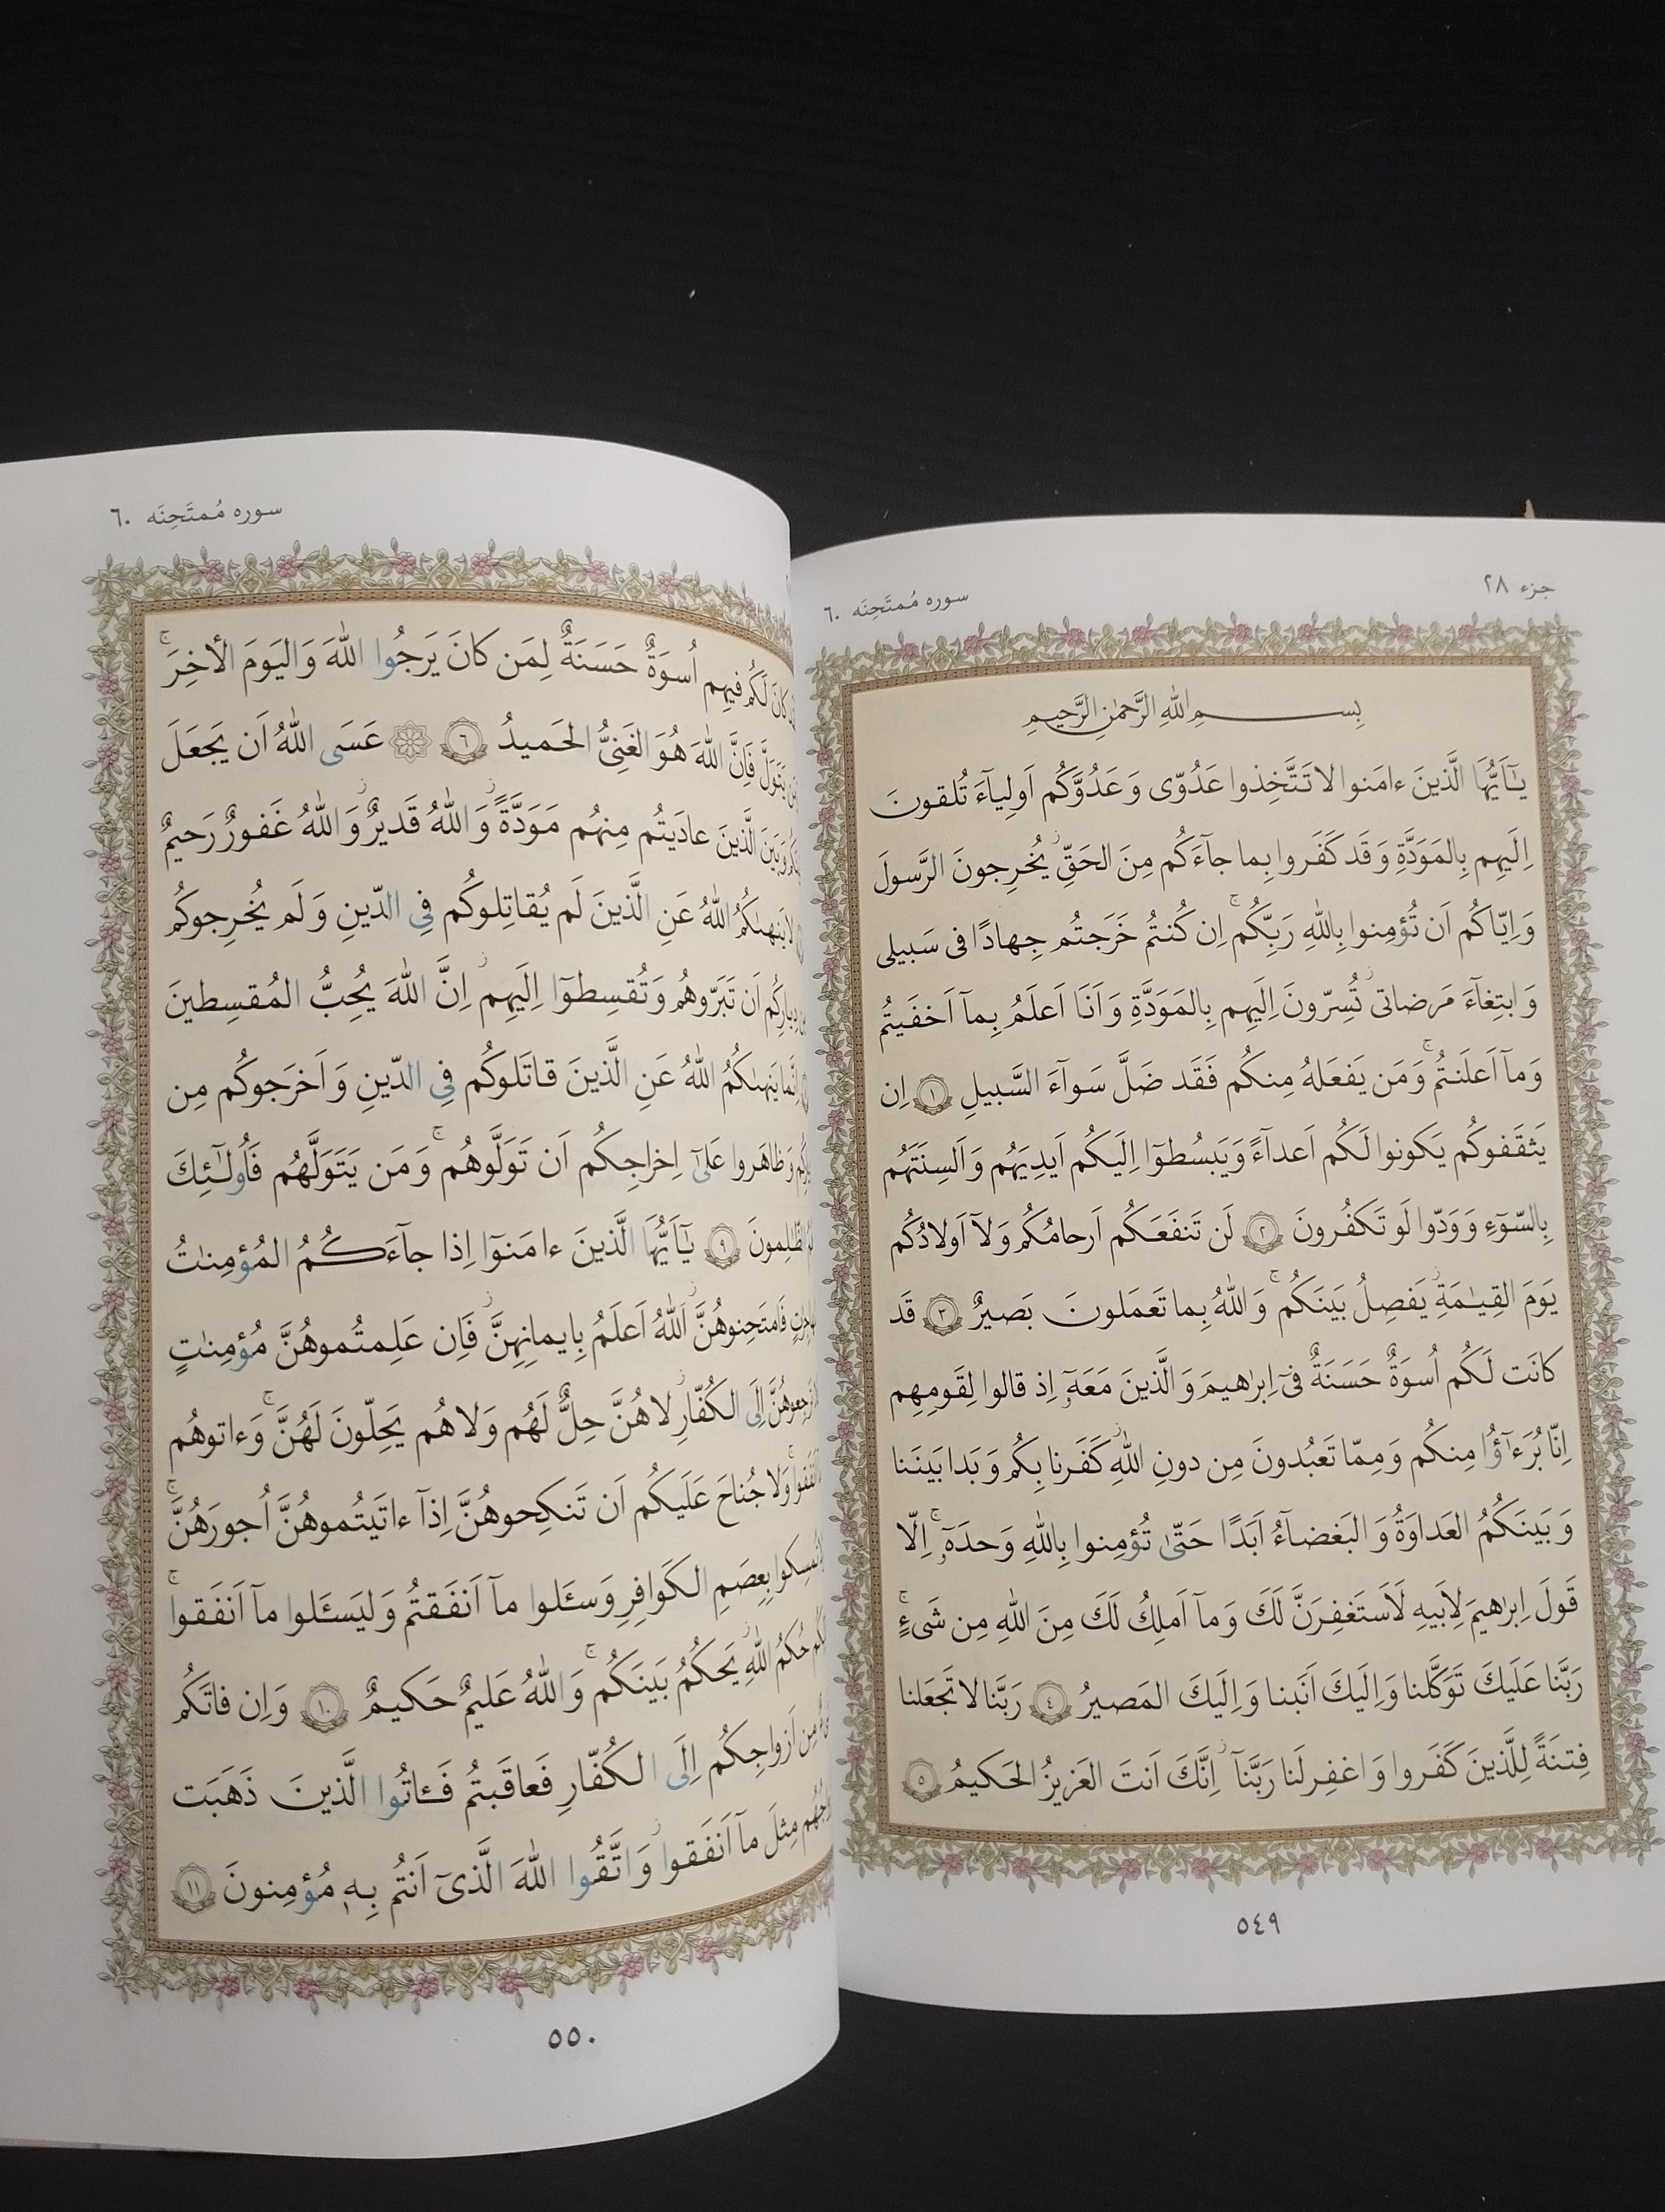 جزء ٢٨
سوره مُمتَحِنَه ٦٠
بِسمِ اللّٰهِ الرَّحمٰنِ الرَّحيمِ
يٰـٓاَيُّهَا الَّذينَ ءامَنوا لا تَتَّخِذوا عَدُوّى وَ عَدُوَّكُم اَولِيآءَ تُلقونَ
اِلَيهِم بِالمَوَدَّةِ وَ قَد كَفَروا بِما جآءَكُم مِنَ الحَقِّ ۚ يُخرِجونَ الرَّسولَ
وَ اِيّاكُم اَن تُؤمِنوا بِاللّٰهِ رَبِّكُم ۚ اِن كُنتُم خَرَجتُم جِهادًا فى سَبيلى
وَ ابتِغآءَ مَرضاتى ۚ تُسِرّونَ اِلَيهِم بِالمَوَدَّةِ وَ اَنَا اَعلَمُ بِمآ اَخفَيتُم
وَ مآ اَعلَنتُم ۚ وَ مَن يَفعَلهُ مِنكُم فَقَد ضَلَّ سَوآءَ السَّبيلِ ١ اِن
يَثقَفوكُم يَكونوا لَكُم اَعدآءً وَ يَبسُطوٓا اِلَيكُم اَيدِيَهُم وَ اَلسِنَتَهُم
بِالسّوٓءِ وَ وَدّوا لَو تَكفُرونَ ٢ لَن تَنفَعَكُم اَرحامُكُم وَ لآ اَولادُكُم
يَومَ القِيـٰمَةِ ۚ يَفصِلُ بَينَكُم ۚ وَ اللّٰهُ بِما تَعمَلونَ بَصيرٌ ٣ قَد
كانَت لَكُم اُسوَةٌ حَسَنَةٌ فىٓ اِبرٰهيمَ وَ الَّذينَ مَعَهٗٓ اِذ قالوا لِقَومِهِم
اِنّا بُرَءٰٓؤُا مِنكُم وَ مِمّا تَعبُدونَ مِن دونِ اللّٰهِ كَفَرنا بِكُم وَ بَدا بَينَنا
وَ بَينَكُمُ العَداوَةُ وَ البَغضآءُ اَبَدًا حَتّىٰ تُؤمِنوا بِاللّٰهِ وَحدَهٗٓ ۚ اِلّا
قَولَ اِبرٰهيمَ لِاَبيهِ لَاَستَغفِرَنَّ لَكَ وَ مآ اَملِكُ لَكَ مِنَ اللّٰهِ مِن شَىءٍ ۚ
رَبَّنا عَلَيكَ تَوَكَّلنا وَ اِلَيكَ اَنَبنا وَ اِلَيكَ المَصيرُ ٤ رَبَّنا لا تَجعَلنا
فِتنَةً لِلَّذينَ كَفَروا وَ اغفِر لَنا رَبَّنآ ۚ اِنَّكَ اَنتَ العَزيزُ الحَكيمُ ٥
٥٤٩
سوره مُمتَحِنَه ٦٠
كانَ لَكُم فيهِم اُسوَةٌ حَسَنَةٌ لِمَن كانَ يَرجُوا اللّٰهَ وَ اليَومَ الأخِرَ ۚ
يَتَوَلَّ فَاِنَّ اللّٰهَ هُوَ الغَنِىُّ الحَميدُ ٦ عَسَى اللّٰهُ اَن يَجعَلَ
وَ بَينَ الَّذينَ عادَيتُم مِنهُم مَوَدَّةً ۚ وَ اللّٰهُ قَديرٌ ۚ وَ اللّٰهُ غَفورٌ رَحيمٌ
لا يَنهىٰكُمُ اللّٰهُ عَنِ الَّذينَ لَم يُقاتِلوكُم فِى الدّينِ وَ لَم يُخرِجوكُم
دِيارِكُم اَن تَبَرّوهُم وَ تُقسِطوٓا اِلَيهِم ۚ اِنَّ اللّٰهَ يُحِبُّ المُقسِطينَ
اِنَّما يَنهىٰكُمُ اللّٰهُ عَنِ الَّذينَ قاتَلوكُم فِى الدّينِ وَ اَخرَجوكُم مِن
وَ ظاهَروا عَلىٰٓ اِخراجِكُم اَن تَوَلَّوهُم ۚ وَ مَن يَتَوَلَّهُم فَاُولـٰٓئِكَ
الظّٰلِمونَ ٩ يٰـٓاَيُّهَا الَّذينَ ءامَنوٓا اِذا جآءَكُمُ المُؤمِنـٰتُ
فَامتَحِنوهُنَّ ۚ اَللّٰهُ اَعلَمُ بِايمانِهِنَّ ۚ فَاِن عَلِمتُموهُنَّ مُؤمِنـٰتٍ
تَرجِعوهُنَّ اِلَى الكُفّارِ ۚ لا هُنَّ حِلٌّ لَهُم وَ لا هُم يَحِلّونَ لَهُنَّ ۚ وَ ءاتوهُم
اَنفَقوا ۚ وَ لا جُناحَ عَلَيكُم اَن تَنكِحوهُنَّ اِذآ ءاتَيتُموهُنَّ اُجورَهُنَّ ۚ
تُمسِكوا بِعِصَمِ الكَوافِرِ وَ سـَٔلوا مآ اَنفَقتُم وَ ليَسـَٔلوا مآ اَنفَقوا ۚ
حُكمُ اللّٰهِ ۚ يَحكُمُ بَينَكُم ۚ وَ اللّٰهُ عَليمٌ حَكيمٌ ١٠ وَ اِن فاتَكُم
مِن اَزواجِكُم اِلَى الكُفّارِ فَعاقَبتُم فَـٔاتُوا الَّذينَ ذَهَبَت
مِثلَ مآ اَنفَقوا ۚ وَ اتَّقُوا اللّٰهَ الَّذىٓ اَنتُم بِهٖ مُؤمِنونَ ١١
٥٥٠